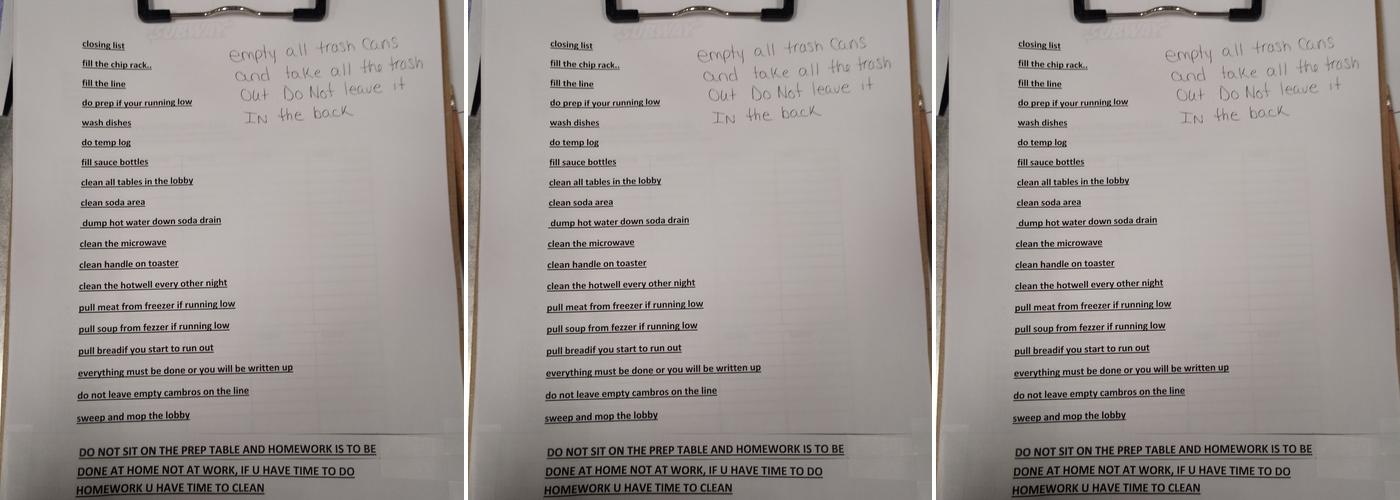 closing list
fill the chip rack..
fill the line
do prep if your running low
wash dishes
do temp log
fill sauce bottles
clean all tables in the lobby
clean soda area
dump hot water down soda drain
clean the microwave
clean handle on toaster
clean the hotwell every other night
pull meat from freezer if running low
pull soup from fezzer if running low
pull breadif you start to run out
everything must be done or you will be written up
do not leave empty cambros on the line
sweep and mop the lobby
empty all trash cans
and take all the trash
out Do Not leave it
IN the back
DO NOT SIT ON THE PREP TABLE AND HOMEWORK IS TO BE
DONE AT HOME NOT AT WORK, IF U HAVE TIME TO DO
HOMEWORK U HAVE TIME TO CLEAN
SUBWAY
closing list
fill the chip rack..
fill the line
do prep if your running low
wash dishes
do temp log
fill sauce bottles
clean all tables in the lobby
clean soda area
dump hot water down soda drain
clean the microwave
clean handle on toaster
clean the hotwell every other night
pull meat from freezer if running low
pull soup from fezzer if running low
pull breadif you start to run out
everything must be done or you will be written up
do not leave empty cambros on the line
sweep and mop the lobby
empty all trash cans
and take all the trash
out Do Not leave it
IN the back
DO NOT SIT ON THE PREP TABLE AND HOMEWORK IS TO BE
DONE AT HOME NOT AT WORK, IF U HAVE TIME TO DO
HOMEWORK U HAVE TIME TO CLEAN
SUBWAY
closing list
fill the chip rack..
fill the line
do prep if your running low
wash dishes
do temp log
fill sauce bottles
clean all tables in the lobby
clean soda area
dump hot water down soda drain
clean the microwave
clean handle on toaster
clean the hotwell every other night
pull meat from freezer if running low
pull soup from fezzer if running low
pull breadif you start to run out
everything must be done or you will be written up
do not leave empty cambros on the line
sweep and mop the lobby
empty all trash cans
and take all the trash
out Do Not leave it
IN the back
DO NOT SIT ON THE PREP TABLE AND HOMEWORK IS TO BE
DONE AT HOME NOT AT WORK, IF U HAVE TIME TO DO
HOMEWORK U HAVE TIME TO CLEAN
SUBWAY